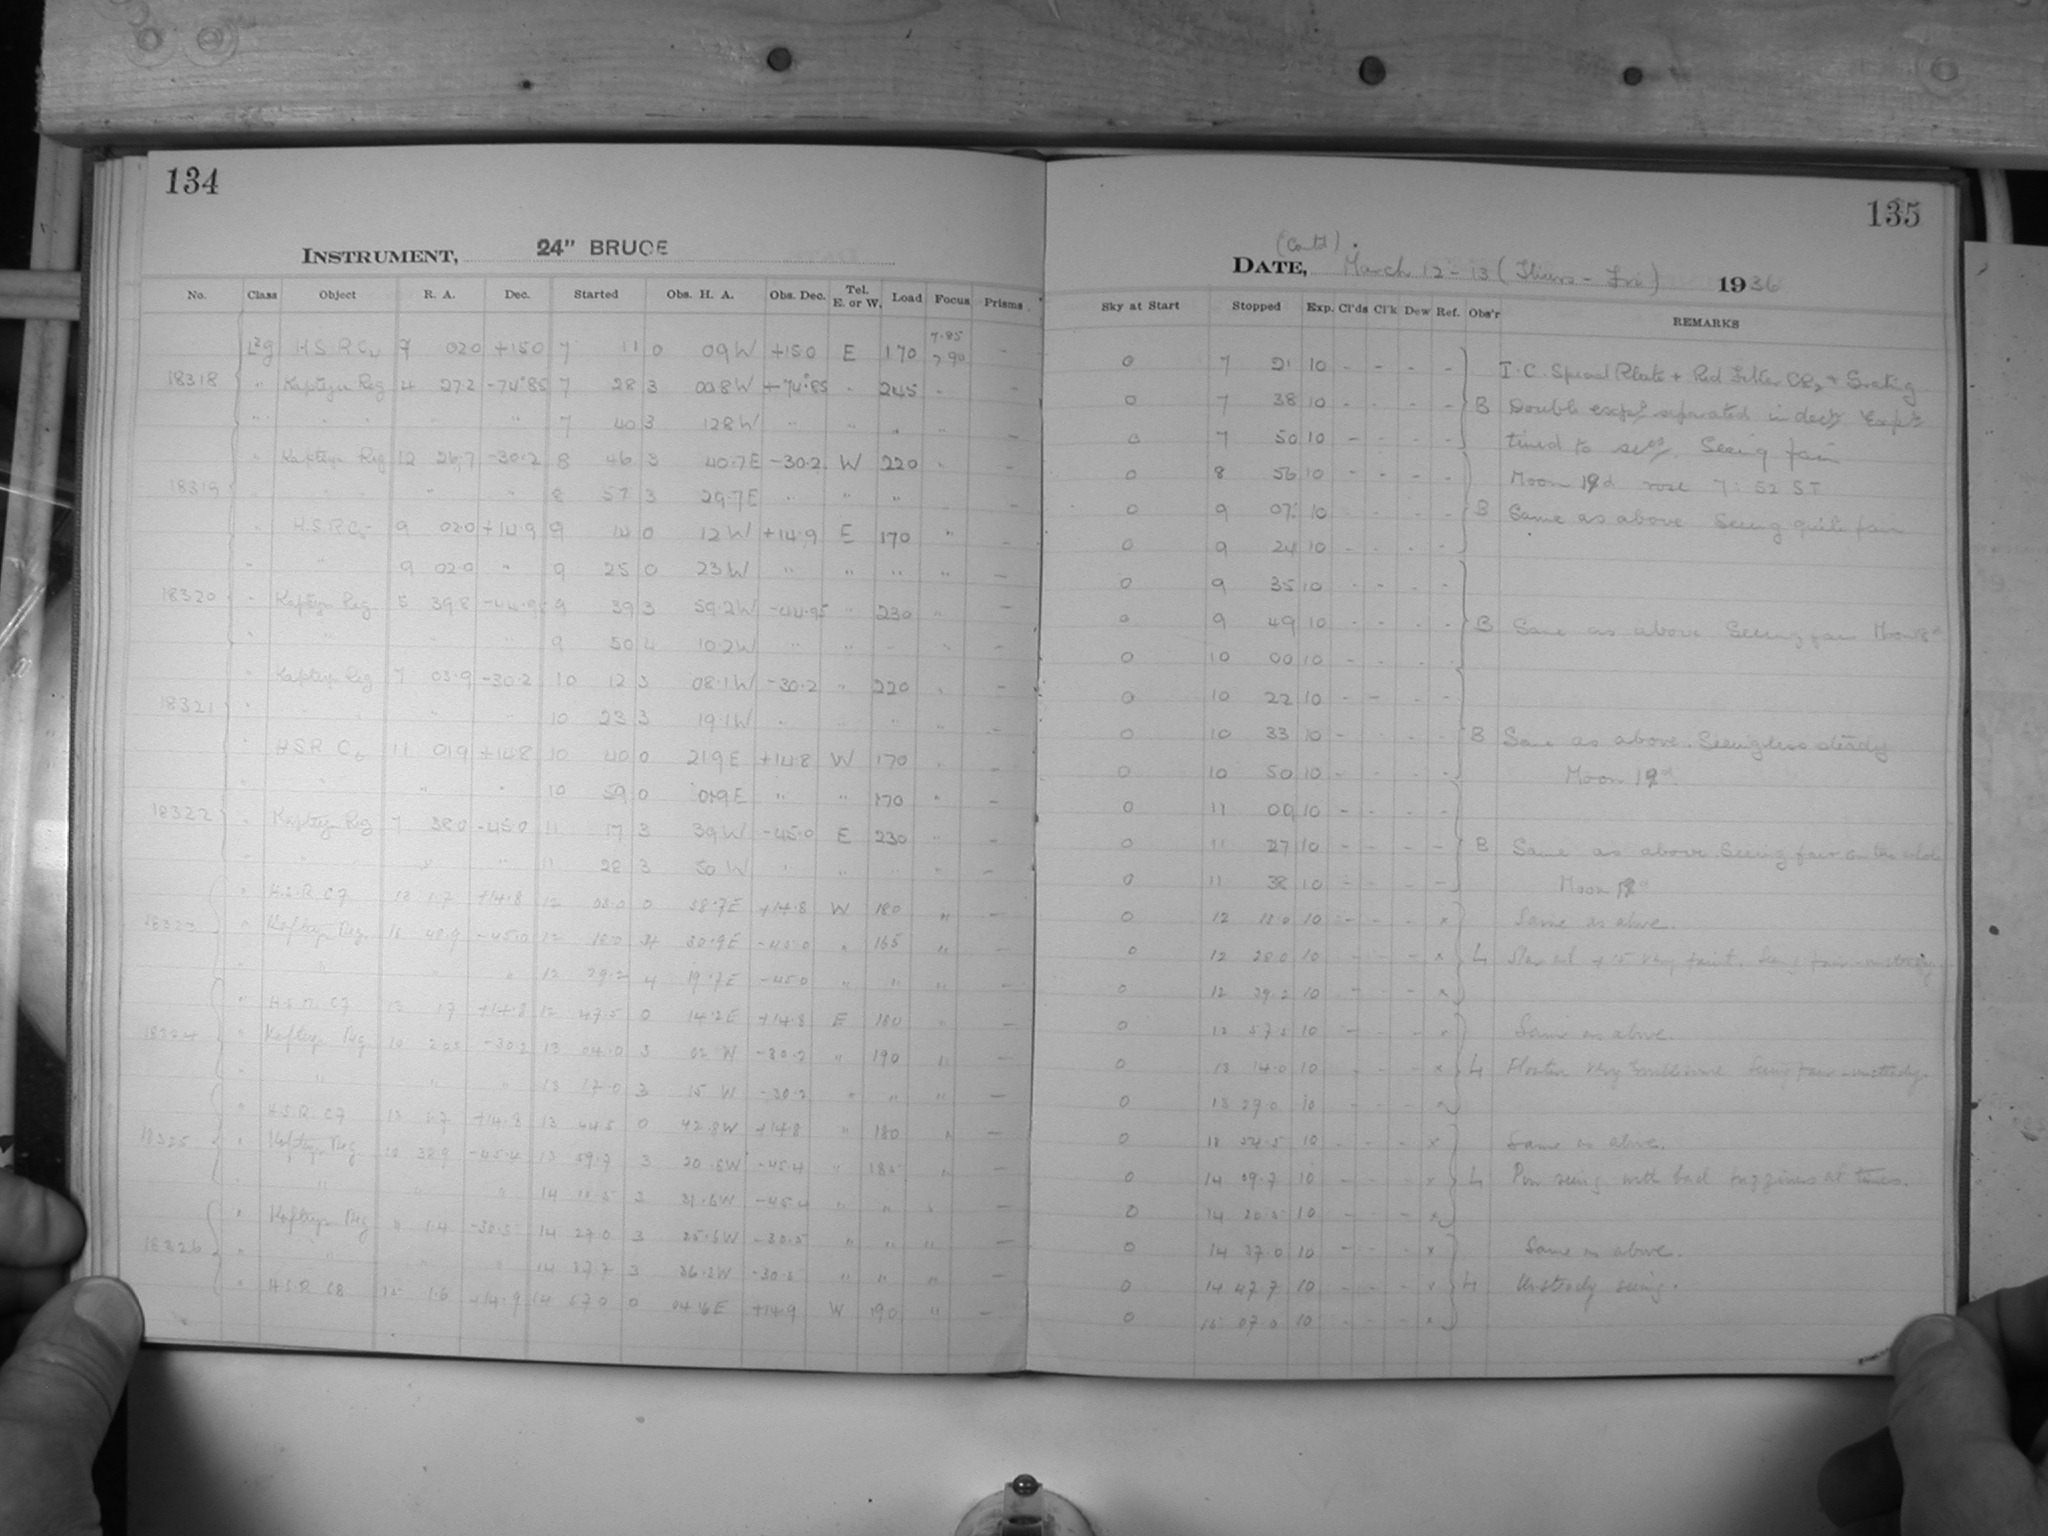 134
INSTRUMENT, 24" BRUCE
No. Class Object R. A. Dec. Started Obs. H. A. Obs. Dec. Tel. E. or W. Load Focus Prisms
H.S.R C 7 02.0 +15.0 7 11 0 09 W +15.0 E 170 7.85 7.90 -
18318 " Kapteyn Reg 4 27.2 -74.85 7 28 3 00.8 W -74.85 " 245 " -
" " " " " 7 40 3 12.8 W " " " " -
" Kapteyn Reg 12 26.7 -30.2 8 46 3 40.7 E -30.2 W 220 " -
18319 " " " " 8 57 3 29.7 E " " " " -
" H.S.R C5 9 02.0 +14.9 9 14 0 12 W +14.9 E 170 " -
" " 9 02.0 " 9 25 0 23 W " " " " -
18320 " Kapteyn Reg 5 39.8 -44.95 9 39 3 59.2 W -44.95 " 230 " -
" " " " 9 50 4 10.2 W " " " " -
" Kapteyn Reg 7 03.9 -30.2 10 12 3 08.1 W -30.2 " 220 " -
18321 " " " 10 23 3 19.1 W " " " " -
" H.S.R C6 11 01.9 +14.8 10 40 0 21.9 E +14.8 W 170 " -
" " " " 10 59 0 0.9 E " " 170 " -
18322 " Kapteyn Reg 7 38.0 -45.0 11 17 3 39 W -45.0 E 230 " -
" " " " 11 28 3 50 W " " " " -
" H.S.R C7 13 1.7 +14.8 12 03.0 0 58.7 E +14.8 W 180 " -
18323 " Kapteyn Reg. -45.0 12 18.0 30.9 E -45.0 " 165 " -
" " " " 12 29.2 4 19.7 E -45.0 " " " -
" H.S.R. C7 13 1.7 +14.8 12 47.5 0 14.2 E +14.8 E 180 " -
18324 " Kapteyn Reg 10 -30.2 13 04.0 3 02 W -30.2 " 190 " -
" " " " 13 17.0 3 15 W -30.2 " " " -
" H.S.R. C7 13 1.7 +14.8 13 44.5 0 42.8 W +14.8 " 180 " -
18325 " Kapteyn Reg 10 38.9 -45.4 13 59.7 3 20.8 W -45.4 " 185 " -
" " " " 14 10.5 3 31.6 W -45.4 " " " -
" Kapteyn Reg 11 1.4 -30.5 14 27.0 3 25.6 W -30.5 " " " -
18326 " " " " 14 37.7 3 36.3 W -30.5 " " " -
" H.S.R C8 15 1.6 +14.9 14 57.0 0 04.6 E +14.9 W 190 " -
135
(Contd).
DATE, March 12 - 13 (Thurs - Fri) 1936
Sky at Start Stopped Exp. Cl'ds Cl'k Dew Ref. Obs'r REMARKS
0 7 21 10 - - - - I.C. Special Plate + Red Filter + Grating
0 7 38 10 - - - - B Double exps separated in dec. Exps
0 7 50 10 - - - - timed to secs. Seeing fair
0 8 56 10 - - - - Moon 19d rose 7:52 ST
0 9 07 10 - - - - B Same as above Seeing quite fair
0 9 24 10 - - - -
0 9 35 10 - - - -
0 9 49 10 - - - - B Same as above Seeing fair Moon
0 10 00 10 - - - -
0 10 22 10 - - - -
0 10 33 10 - - - - B Same as above. Seeing less steady
0 10 50 10 - - - - Moon 19d.
0 11 09 10 - - - -
0 11 27 10 - - - - B Same as above. Seeing fair on the whole
0 11 38 10 - - - - Moon 19d
0 12 13.0 10 - - - x Same as above.
0 12 28.0 10 - - - x H very faint. Seeing fair - unsteady.
0 12 39.2 10 - - - x
0 12 57.5 10 - - - x Same as above.
0 13 14.0 10 - - - x H Seeing fair - unsteady.
0 13 27.0 10 - - - x
0 13 54.5 10 - - - x Same as above.
0 14 09.7 10 - - - x H Poor seeing with bad fuzziness at times.
0 14 20.5 10 - - - x
0 14 37.0 10 - - - x Same as above.
0 14 47.7 10 - - - x H Unsteady seeing.
0 15 07.0 10 - - - x